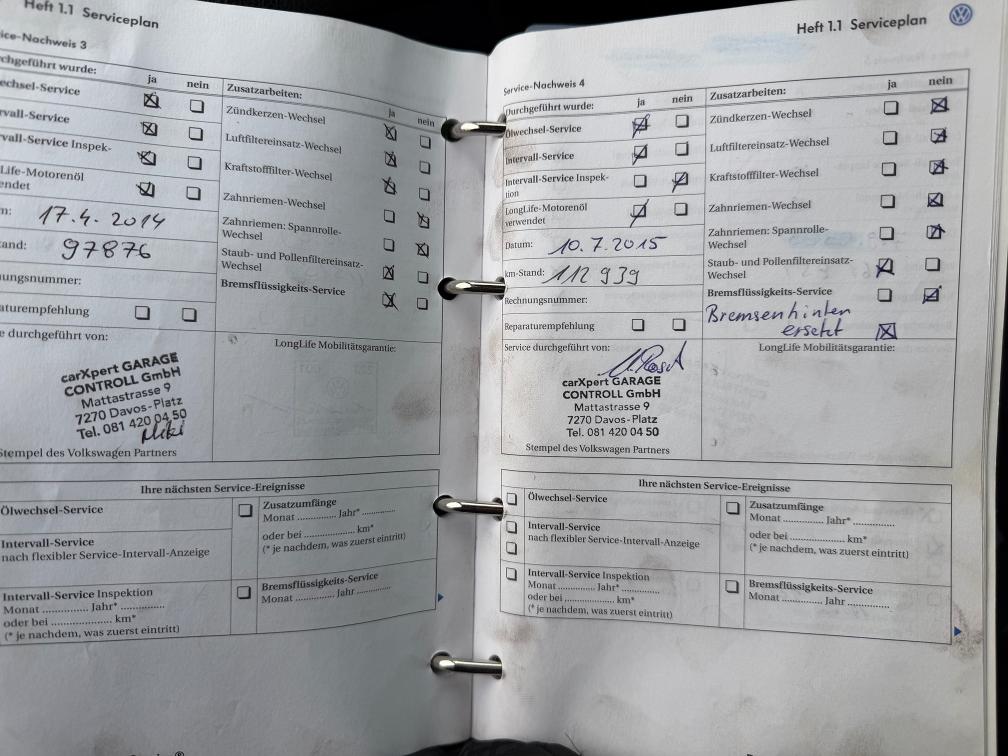 Heft 1.1 Serviceplan
ice-Nachweis 3
chgeführt wurde:
ja
nein
echsel-Service
rvall-Service
rvall-Service Inspek-
Life-Motorenöl
endet
m: 17.4.2014
tand: 97876
nungsnummer:
araturempfehlung
e durchgeführt von:
carXpert GARAGE
CONTROLL GmbH
Mattastrasse 9
7270 Davos-Platz
Tel. 081 420 04 50
Miki
Stempel des Volkswagen Partners
Zusatzarbeiten:
ja
nein
Zündkerzen-Wechsel
Luftfiltereinsatz-Wechsel
Kraftstofffilter-Wechsel
Zahnriemen-Wechsel
Zahnriemen: Spannrolle-
Wechsel
Staub- und Pollenfiltereinsatz-
Wechsel
Bremsflüssigkeits-Service
LongLife Mobilitätsgarantie:
Ihre nächsten Service-Ereignisse
Ölwechsel-Service
Intervall-Service
nach flexibler Service-Intervall-Anzeige
Intervall-Service Inspektion
Monat .............. Jahr* ..............
oder bei .................... km*
(* je nachdem, was zuerst eintritt)
Zusatzumfänge
Monat ............ Jahr* ............
oder bei .................... km*
(* je nachdem, was zuerst eintritt)
Bremsflüssigkeits-Service
Monat ............ Jahr ............
Heft 1.1 Serviceplan
Service-Nachweis 4
Durchgeführt wurde:
ja
nein
Ölwechsel-Service
Intervall-Service
Intervall-Service Inspek-
tion
LongLife-Motorenöl
verwendet
Datum: 10.7.2015
km-Stand: 112 939
Rechnungsnummer:
Reparaturempfehlung
Service durchgeführt von:
carXpert GARAGE
CONTROLL GmbH
Mattastrasse 9
7270 Davos-Platz
Tel. 081 420 04 50
Stempel des Volkswagen Partners
Zusatzarbeiten:
ja
nein
Zündkerzen-Wechsel
Luftfiltereinsatz-Wechsel
Kraftstofffilter-Wechsel
Zahnriemen-Wechsel
Zahnriemen: Spannrolle-
Wechsel
Staub- und Pollenfiltereinsatz-
Wechsel
Bremsflüssigkeits-Service
Bremsen hinten
ersetzt
LongLife Mobilitätsgarantie:
Ihre nächsten Service-Ereignisse
Ölwechsel-Service
Intervall-Service
nach flexibler Service-Intervall-Anzeige
Intervall-Service Inspektion
Monat ............ Jahr* ............
oder bei .................... km*
(* je nachdem, was zuerst eintritt)
Zusatzumfänge
Monat ............ Jahr* ............
oder bei .................... km*
(* je nachdem, was zuerst eintritt)
Bremsflüssigkeits-Service
Monat ............ Jahr ............